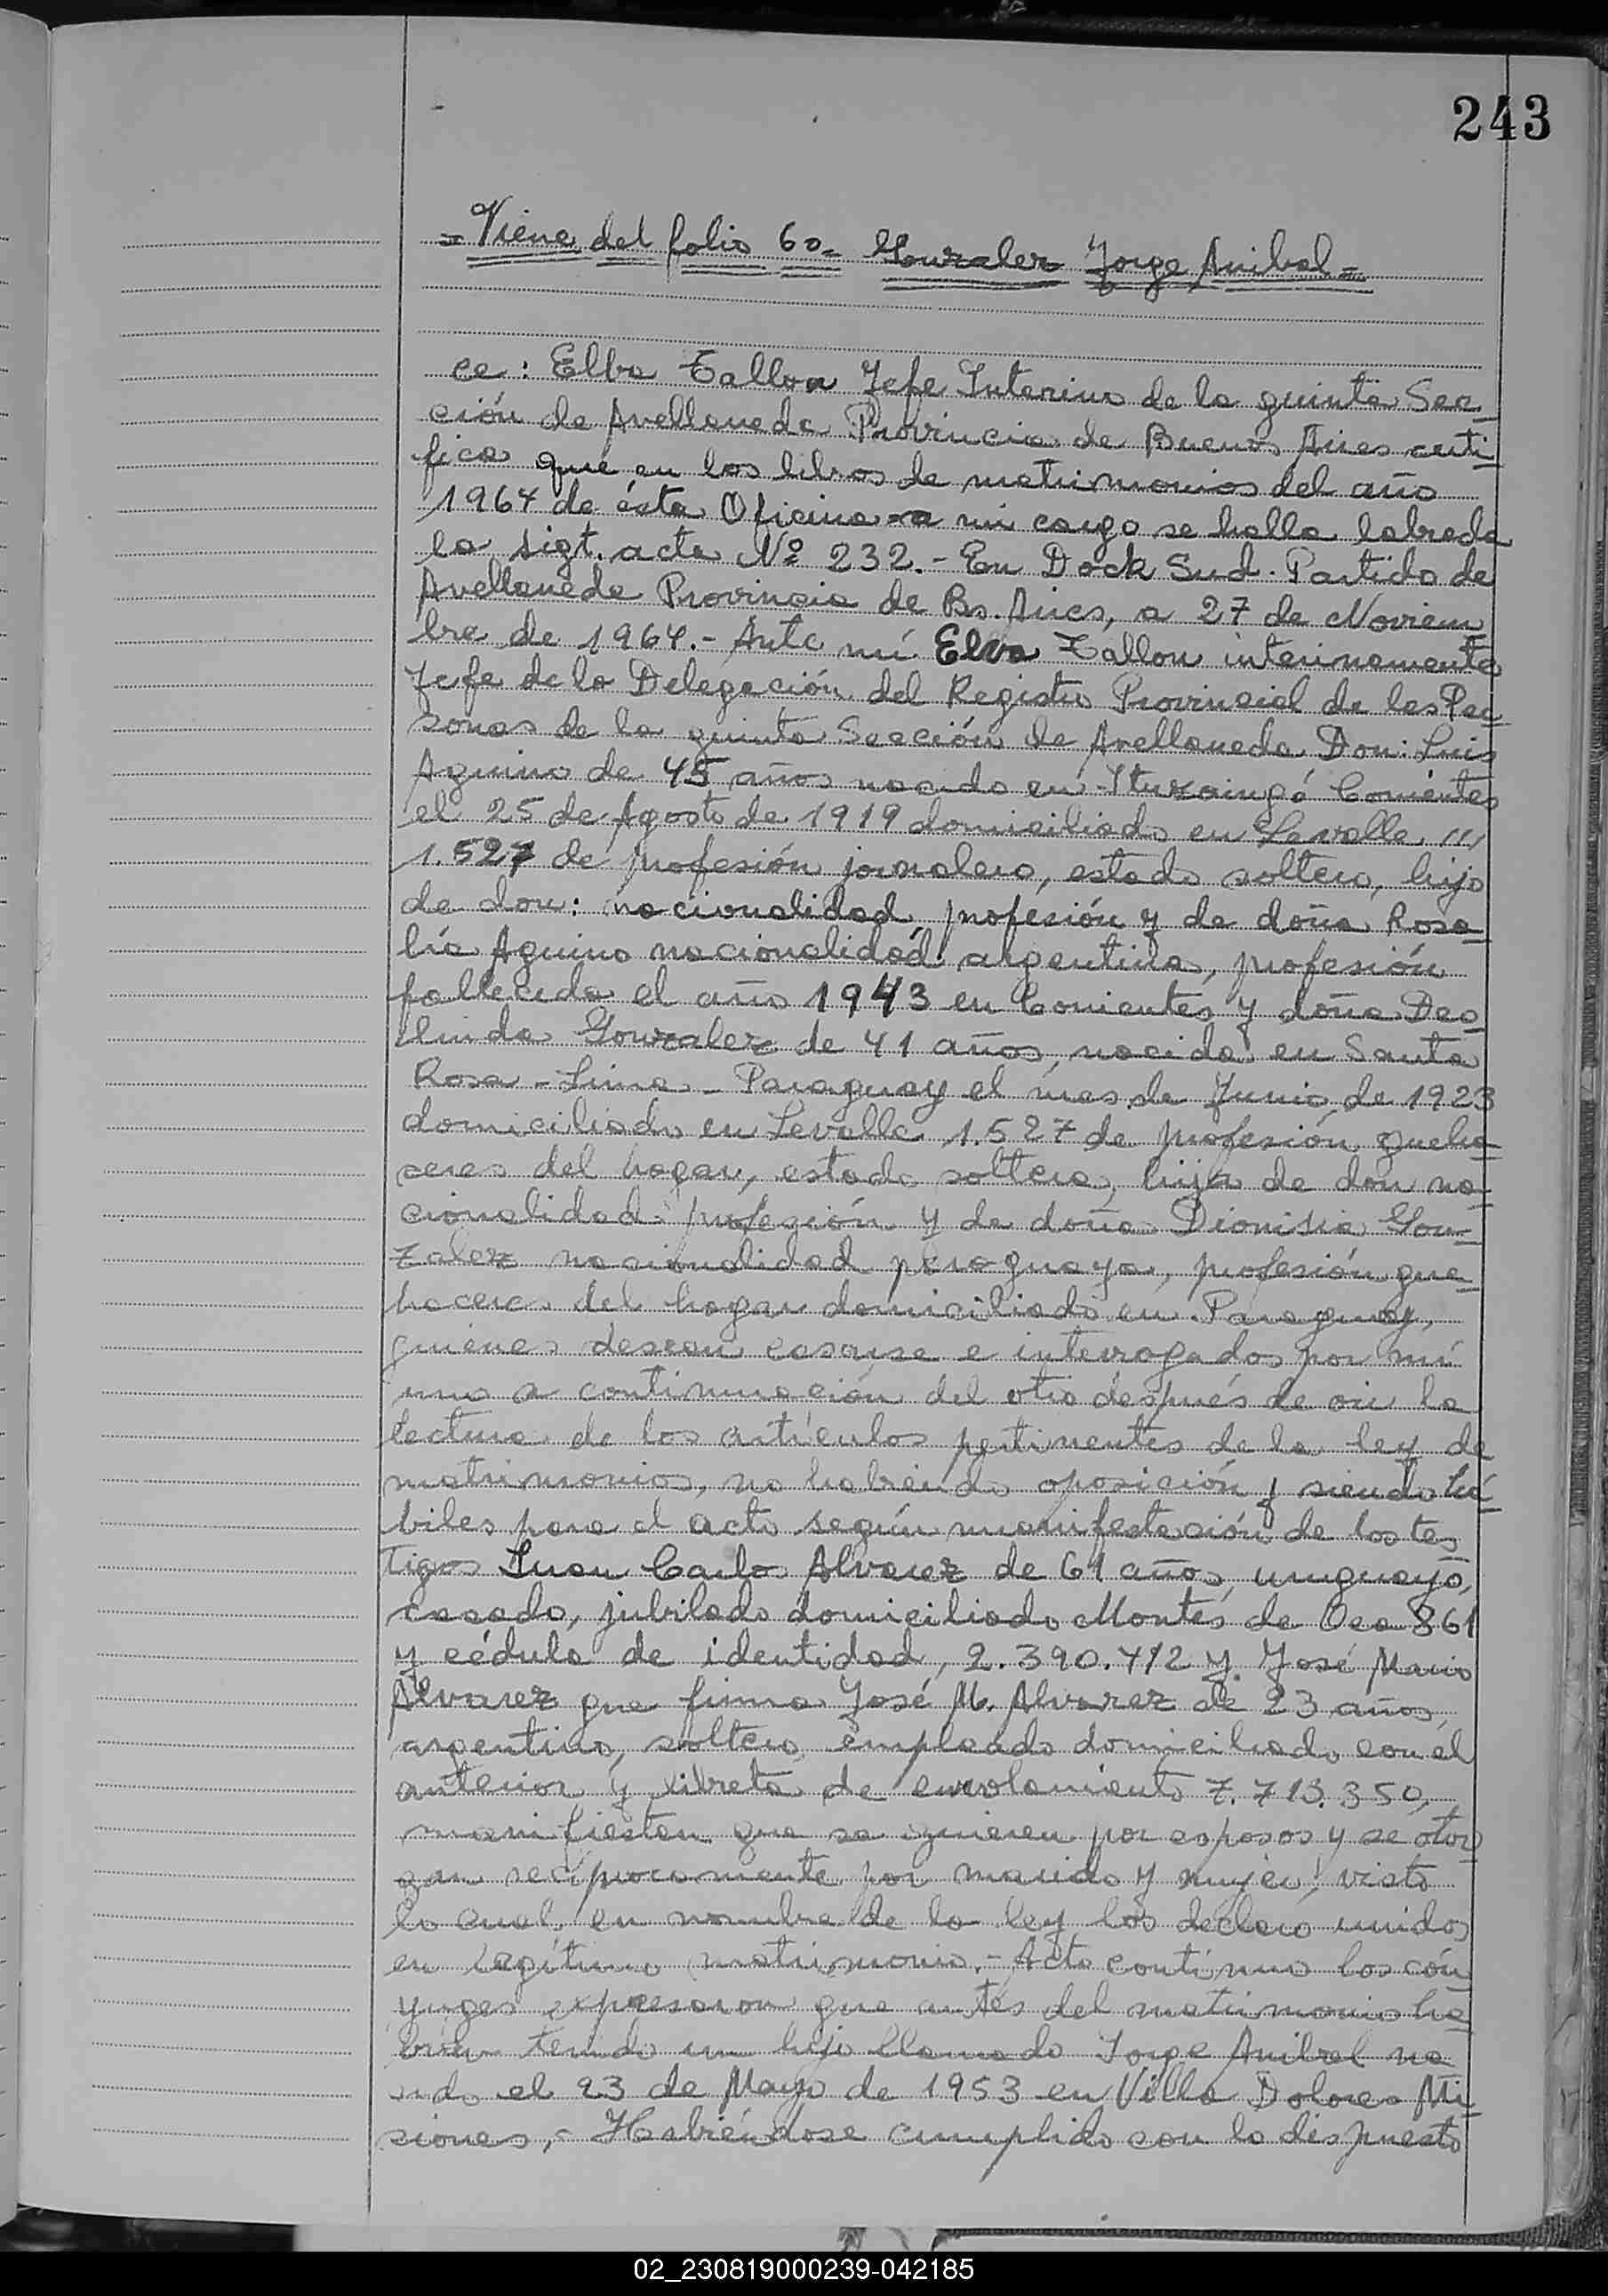 243
= Viene del folio 60 = Gonzalez Jorge Anibal =
ce: Elba Tallon Jefe Interino de la quinta Sec-
ción de Avellaneda Provincia de Buenos Aires certi-
fica que en los libros de matrimonios del año
1964 de ésta Oficina a mi cargo se halla labrada
la sigt. acta Nº 232.- En Dock Sud. Partido de
Avellaneda Provincia de Bs. Aires, a 27 de Noviem
bre de 1964.- Ante mí Elva Tallon interinamente
Jefe de la Delegación del Registro Provincial de las Per
sonas de la quinta Sección de Avellaneda Don: Luis
Aquino de 45 años nacido en Ituzaingó Corrientes
el 25 de Agosto de 1919 domiciliado en Levalle ///
1.527 de profesión jornalero, estado soltero, hijo
de don: nacionalidad, profesión y de doña Rosa-
lía Aquino nacionalidad argentina, profesión
fallecida el año 1943 en Corrientes y doña Deo-
linda Gonzalez de 41 años, nacida en Santa
Rosa - Lima - Paraguay el mes de Junio de 1923
domiciliado en Levalle 1.527 de profesión queha-
ceres del hogar, estado soltera, hija de don na-
cionalidad profeción y de doña Dionisia Gon-
zalez nacionalidad paraguaya, profesión que-
haceres del hogar domiciliado en Paraguay,
quiénes desean casarse e interrogados por mí
uno a continuación del otro después de oir la
lectura de los artículos pertinentes de la ley de
matrimonios, no habiendo oposición y siendo há-
biles para el acto según manifestación de los tes
tigos Juan Carlos Alvarez de 61 años, uruguayo,
casado, jubilado domiciliado Montes de Oca 861
y cédula de identidad, 2.390.412 y José Mario
Alvarez que firma José M. Alvarez de 23 años,
argentino, soltero, empleado domiciliado con el
anterior y libreta de enrolamiento 7.713.350,
manifiestan que se quieren por esposos y se otor
gan recíprocamente por marido y mujer; visto
lo cual, en nombre de la ley los declaró unidos
en legítimo matrimonio.- Acto contínuo los cón
yuges expresaron que antes del matrimonio ha-
bían tenido un hijo llamado Jorge Anibal na
cido el 23 de Mayo de 1953 en Villa Dolores Mi-
siones,- Habiéndose cumplido con lo dispuesto
02_230819000239-042185